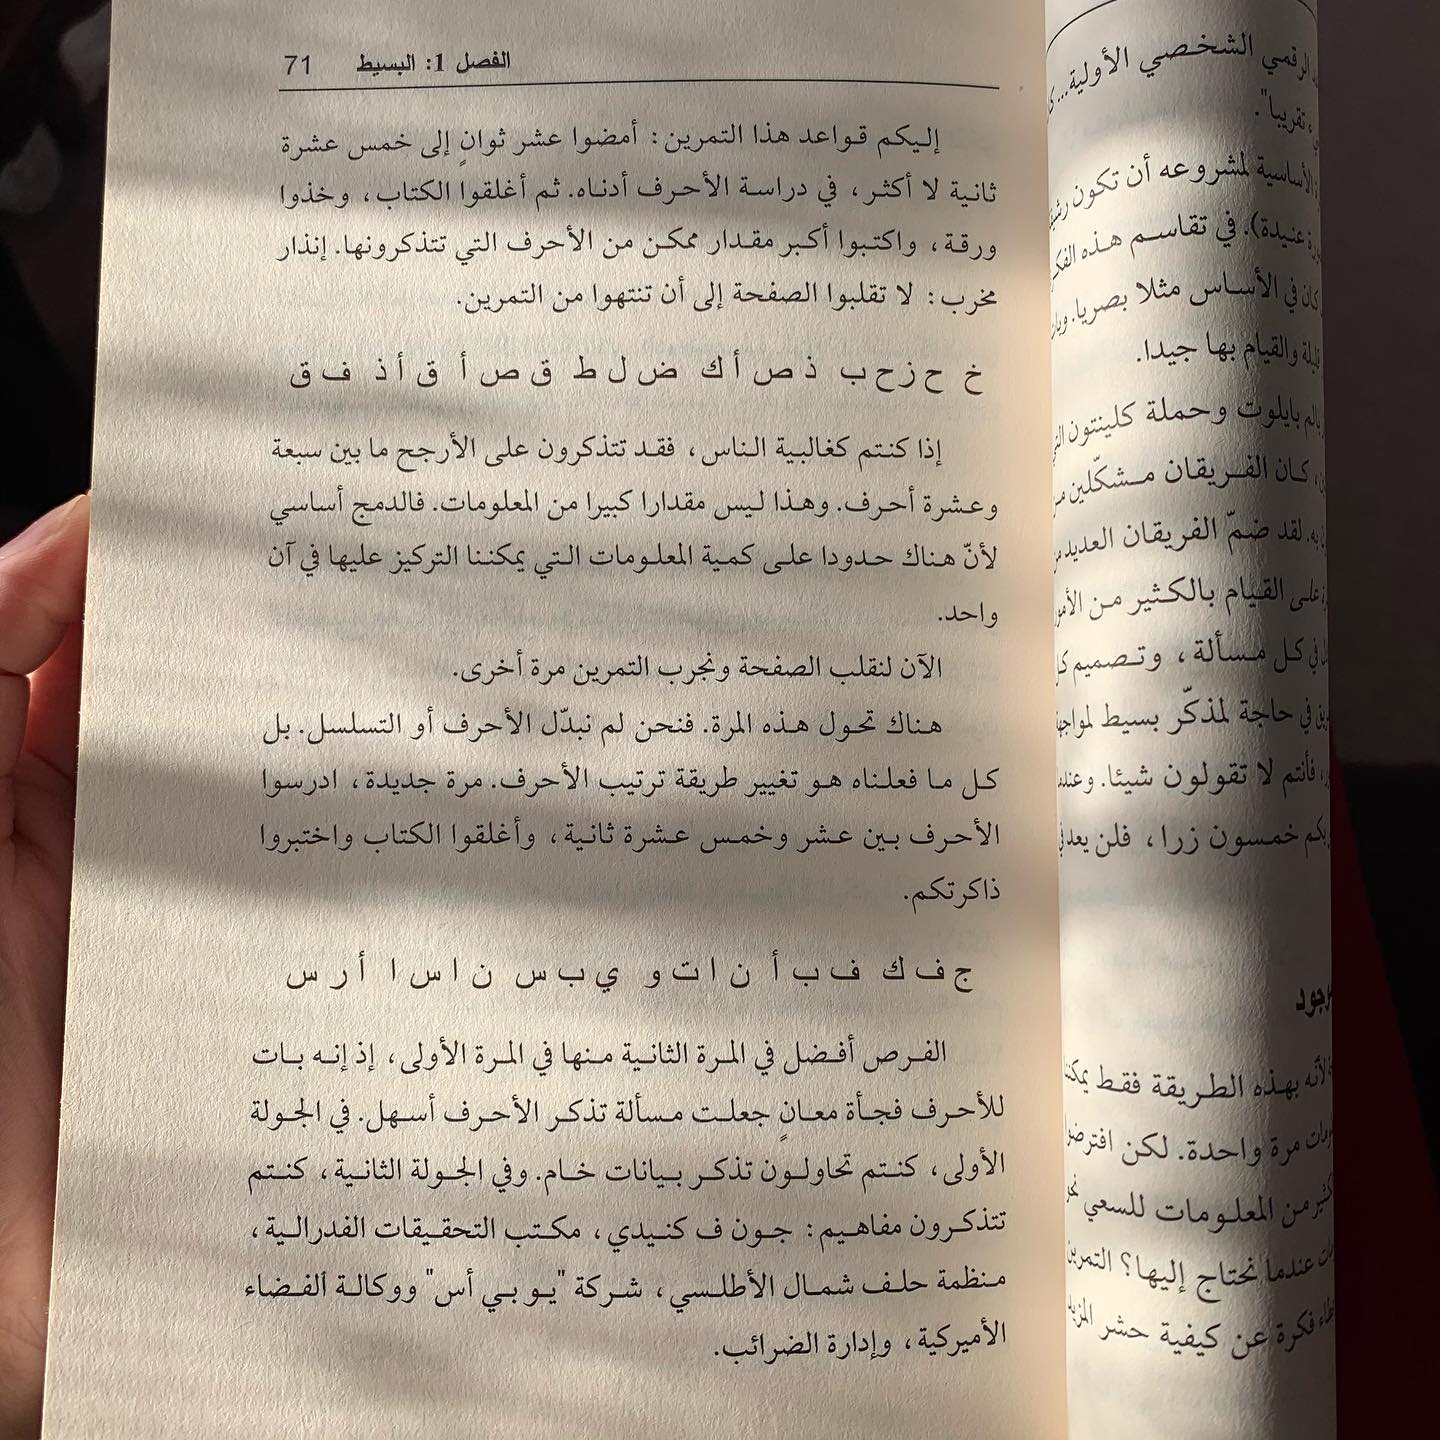 الفصل 1: البسيط 71
إليكم قواعد هذا التمرين: أمضوا عشر ثوانٍ إلى خمس عشرة
ثانية لا أكثر، في دراسة الأحرف أدناه. ثم أغلقوا الكتاب، وخذوا
ورقة، واكتبوا أكبر مقدار ممكن من الأحرف التي تتذكرونها. إنذار
مخرب: لا تقلبوا الصفحة إلى أن تنتهوا من التمرين.
خ ح ز ح ب ذ ص أ ك ض ل ط ق ص أ ق أ ذ ف ق
إذا كنتم كغالبية الناس، فقد تتذكرون على الأرجح ما بين سبعة
وعشرة أحرف. وهذا ليس مقدارا كبيرا من المعلومات. فالدمج أساسي
لأنّ هناك حدودا على كمية المعلومات التي يمكننا التركيز عليها في آن
واحد.
الآن لنقلب الصفحة ونجرب التمرين مرة أخرى.
هناك تحول هذه المرة. فنحن لم نبدّل الأحرف أو التسلسل. بل
كل ما فعلناه هو تغيير طريقة ترتيب الأحرف. مرة جديدة، ادرسوا
الأحرف بين عشر وخمس عشرة ثانية، وأغلقوا الكتاب واختبروا
ذاكرتكم.
ج ف ك ف ب أ ن ا ت و ي ب س ن ا س ا أ ر س
الفرص أفضل في المرة الثانية منها في المرة الأولى، إذ إنه بات
للأحرف فجأة معانٍ جعلت مسألة تذكر الأحرف أسهل. في الجولة
الأولى، كنتم تحاولون تذكر بيانات خام. وفي الجولة الثانية، كنتم
تتذكرون مفاهيم: جون ف كنيدي، مكتب التحقيقات الفدرالية،
منظمة حلف شمال الأطلسي، شركة "يو بي أس" ووكالة الفضاء
الأميركية، وإدارة الضرائب.
الرقمي الشخصي الأولية...
تقريبا".
الأساسية لمشروعه أن تكون
عنيدة). في تقاسم هذه
كان في الأساس مثلا بصريا.
والقيام بها جيدا.
بايلوت وحملة كلينتون
كان الفريقان مشكّلين
به. لقد ضمّ الفريقان العديد
على القيام بالكثير من
في كل مسألة، وتصميم
في حاجة لمذكّر بسيط
فأنتم لا تقولون شيئا.
خمسون زرا، فلن يعد
لأنه بهذه الطريقة فقط
مرة واحدة. لكن
من المعلومات للسعي
عندما نحتاج إليها؟
فكرة عن كيفية حشر